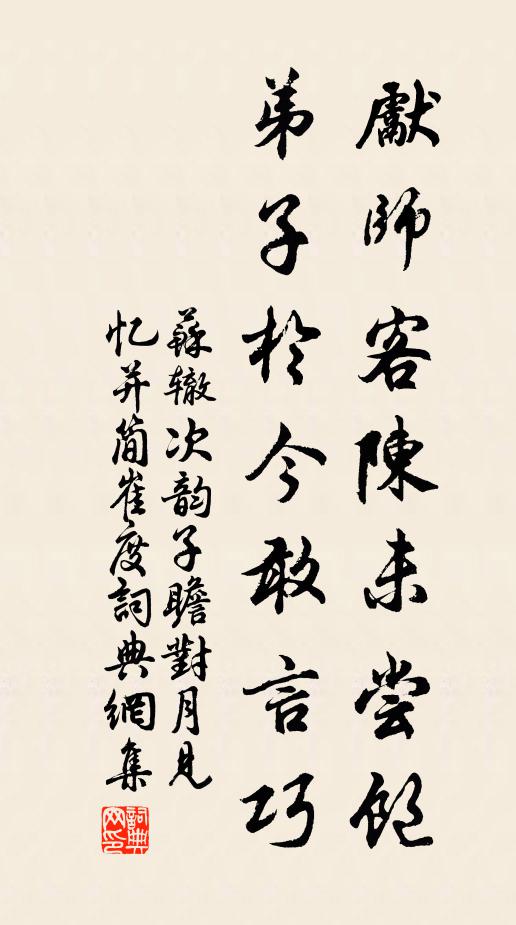 獻師客陳未嘗飽
弟子於今敢言巧
蘇辙次韵子瞻對月見
忆并簡崔度詞典網集
詞典网印